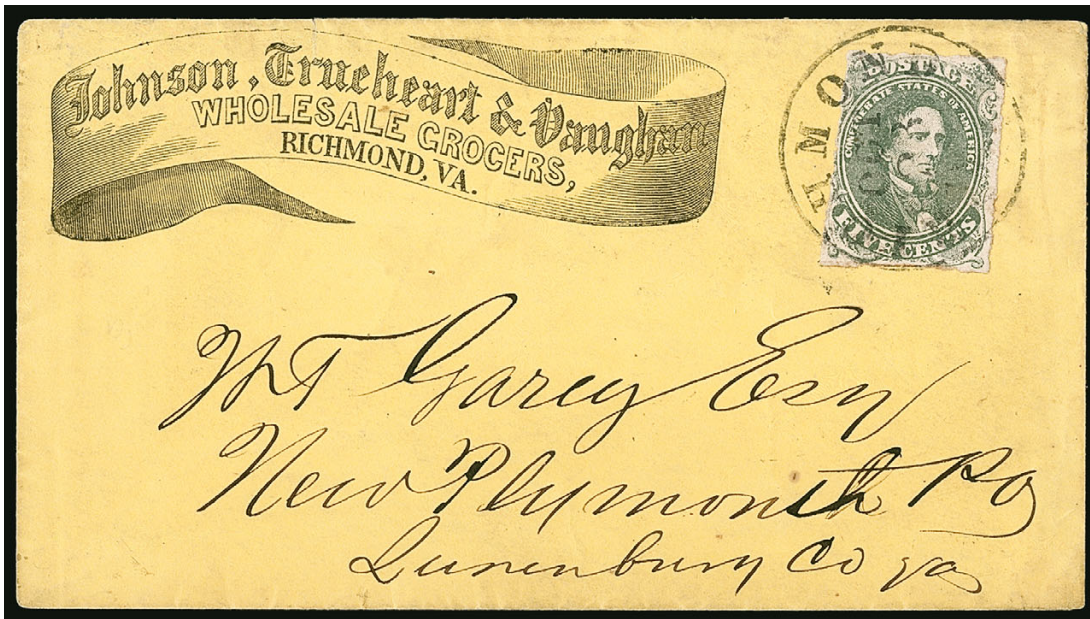 Johnson, Trueheart & Vaughan
WHOLESALE GROCERS,
RICHMOND, VA.
POSTAGE
CONFEDERATE STATES OF AMERICA
FIVE CENTS
HMOND
OCT
Garey Esq
New Plymouth Po
Lunenburg Co Va